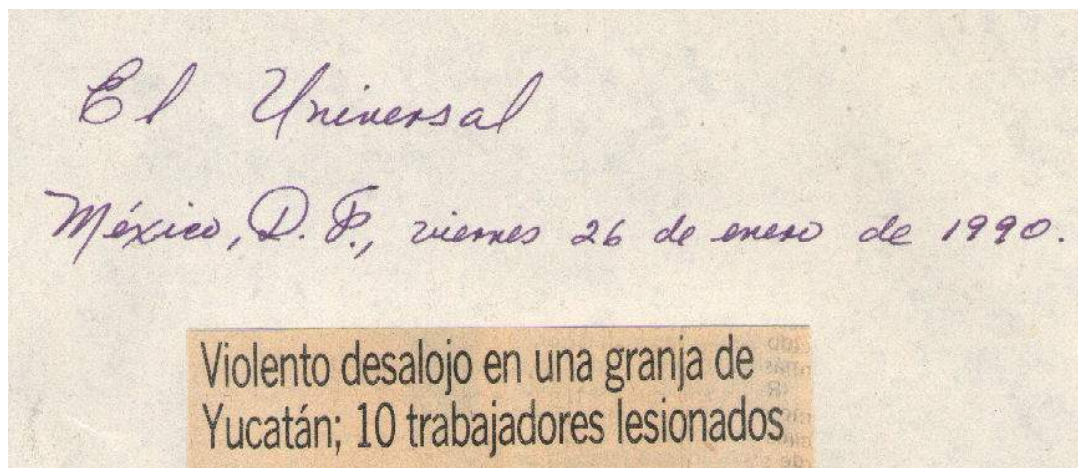 El Universal
México, D. F., viernes 26 de enero de 1990.
Violento desalojo en una granja de
Yucatán; 10 trabajadores lesionados